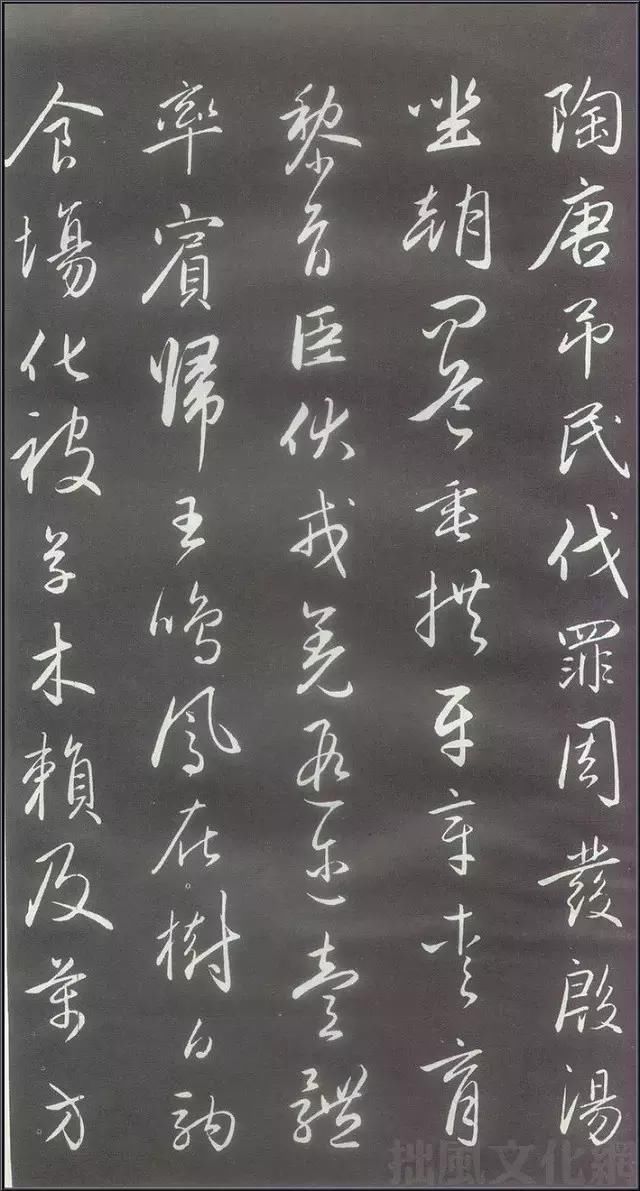 陶唐吊民伐罪周發殷湯
坐朝問道垂拱平章愛育
黎首臣伏戎羌遐邇壹體
率賓歸王鳴鳳在樹白駒
食場化被草木賴及萬方
拙風文化網